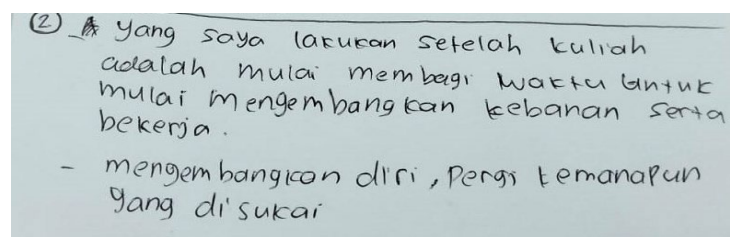 (2) - yang saya lakukan setelah kuliah
adalah mulai membagi waktu untuk
mulai mengembangkan kebanan serta
bekerja.
- mengembangkan diri, pergi kemanapun
yang di sukai